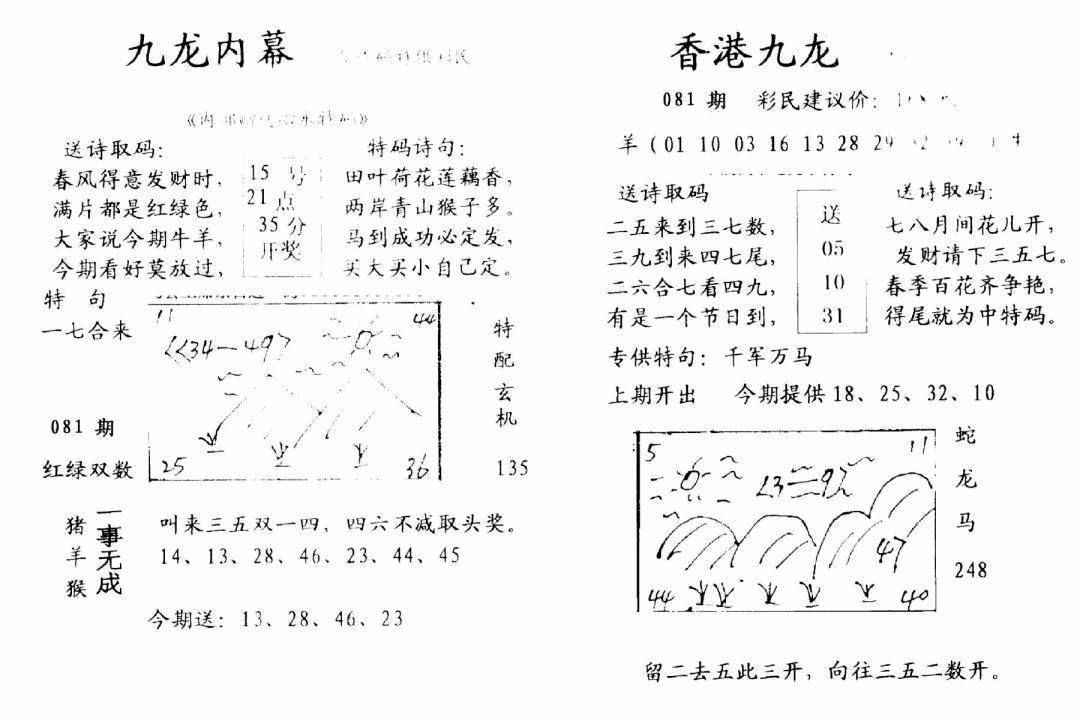 九龙内幕
送诗取码：
春风得意发财时，
满片都是红绿色，
大家说今期牛羊，
今期看好莫放过，
15 号
21 点
35 分
开奖
特码诗句：
田叶荷花莲藕香，
两岸青山猴子多。
马到成功必定发，
买大买小自己定。
特 句
一七合来
081 期
红绿双数
11
44
34—49
25
36
特配玄机
135
猪
羊
猴
一事无成
叫来三五双一四，四六不减取头奖。
14、13、28、46、23、44、45
今期送：13、28、46、23
香港九龙
081 期 彩民建议价：
羊（01 10 03 16 13 28 29
送诗取码
二五来到三七数，
三九到来四七尾，
二六合七看四九，
有是一个节日到，
送
05
10
31
送诗取码：
七八月间花儿开，
发财请下三五七。
春季百花齐争艳，
得尾就为中特码。
专供特句：千军万马
上期开出 今期提供18、25、32、10
5
11
47
44
40
蛇
龙
马
248
留二去五此三开，向往三五二数开。